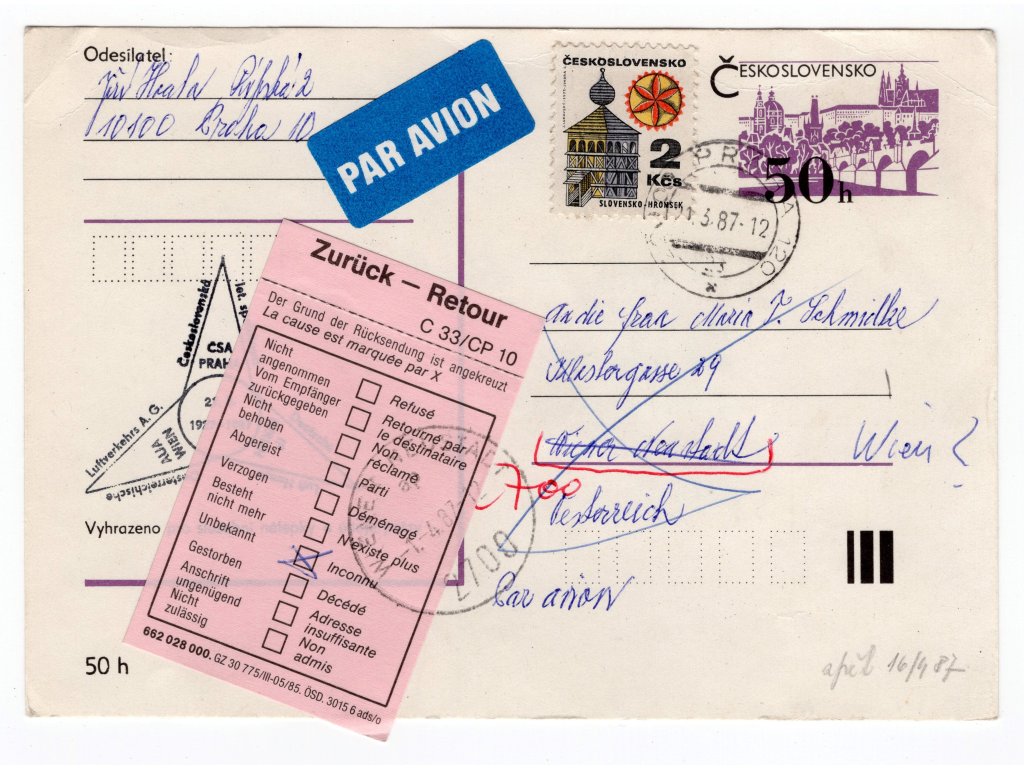 Odesilatel:
Jiří Hrala Řipská 2
10100 Praha 10
PAR AVION
ČESKOSLOVENSKO
2
Kčs
SLOVENSKO-HRONSEK
ČESKOSLOVENSKO
50h
PRAHA 120
3.87-12
Československé
let. sp
ČSA
PRAH
AUA
WIEN
Luftverkehrs A. G.
sterreichische
Vyhrazeno
50 h
Zurück – Retour
C 33/CP 10
Der Grund der Rücksendung ist angekreuzt
La cause est marquée par X
Nicht angenommen
Refusé
Vom Empfänger zurückgegeben
Retourné par le destinataire
Nicht behoben
Non réclamé
Abgereist
Parti
Verzogen
Déménagé
Besteht nicht mehr
N'existe plus
Unbekannt
X
Inconnu
Gestorben
Décédé
Anschrift ungenügend
Adresse insuffisante
Nicht zulässig
Non admis
662 028 000. GZ 30 775/III-05/85. ÖSD. 3015 6 ads/o
WIENER NEUSTADT
-1.-4.87-12
2700
An die frau Maria J. Schmilke
29
Neustadt
Wien?
2700
Oesterreich
Par avion
16/4 87